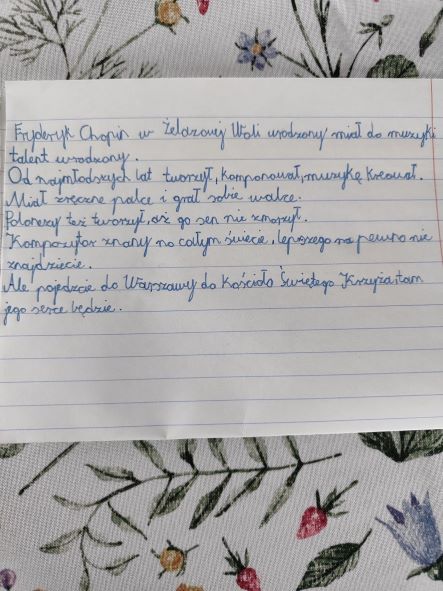 Fryderyk Chopin w Żelazowej Woli urodzony miał do muzyki
talent wrodzony.
Od najmłodszych lat tworzył, komponował, muzykę kreował.
Miał zręczne palce i grał sobie walce.
Polonezy też tworzył, aż go sen nie zmorzył.
Kompozytor znany na całym świecie, lepszego na pewno nie
znajdziecie.
Ale pojedźcie do Warszawy do Kościoła Świętego Krzyża, tam
jego serce będzie.